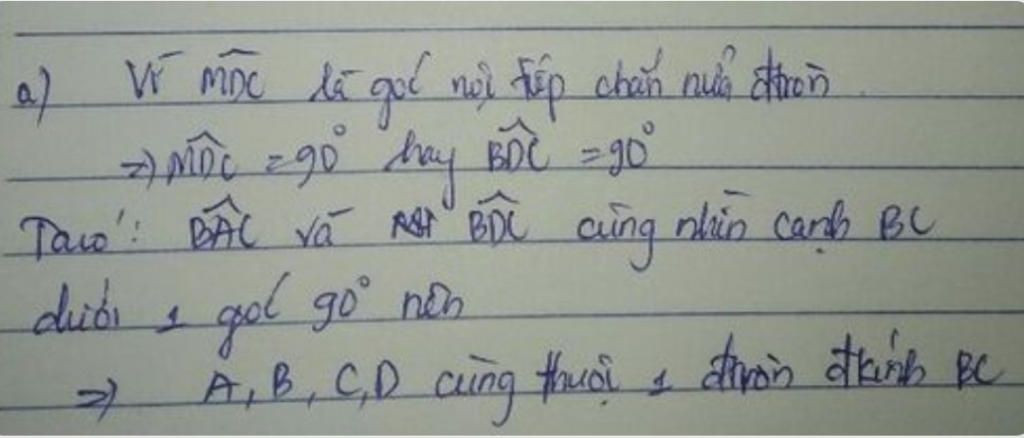 a) Vì MDC là góc nội tiếp chắn nửa đtròn.
=> MDC = 90° hay BDC = 90°
Ta có: BAC và BDC cùng nhìn cạnh BC
dưới 1 góc 90° nên
=> A, B, C, D cùng thuộc 1 đtròn đkính BC